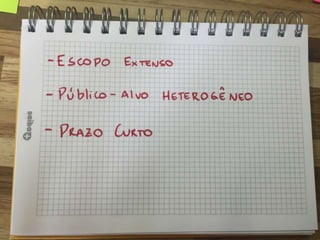 - ESCOPO EXTENSO
- PÚBLICO-ALVO HETEROGÊNEO
- PRAZO CURTO